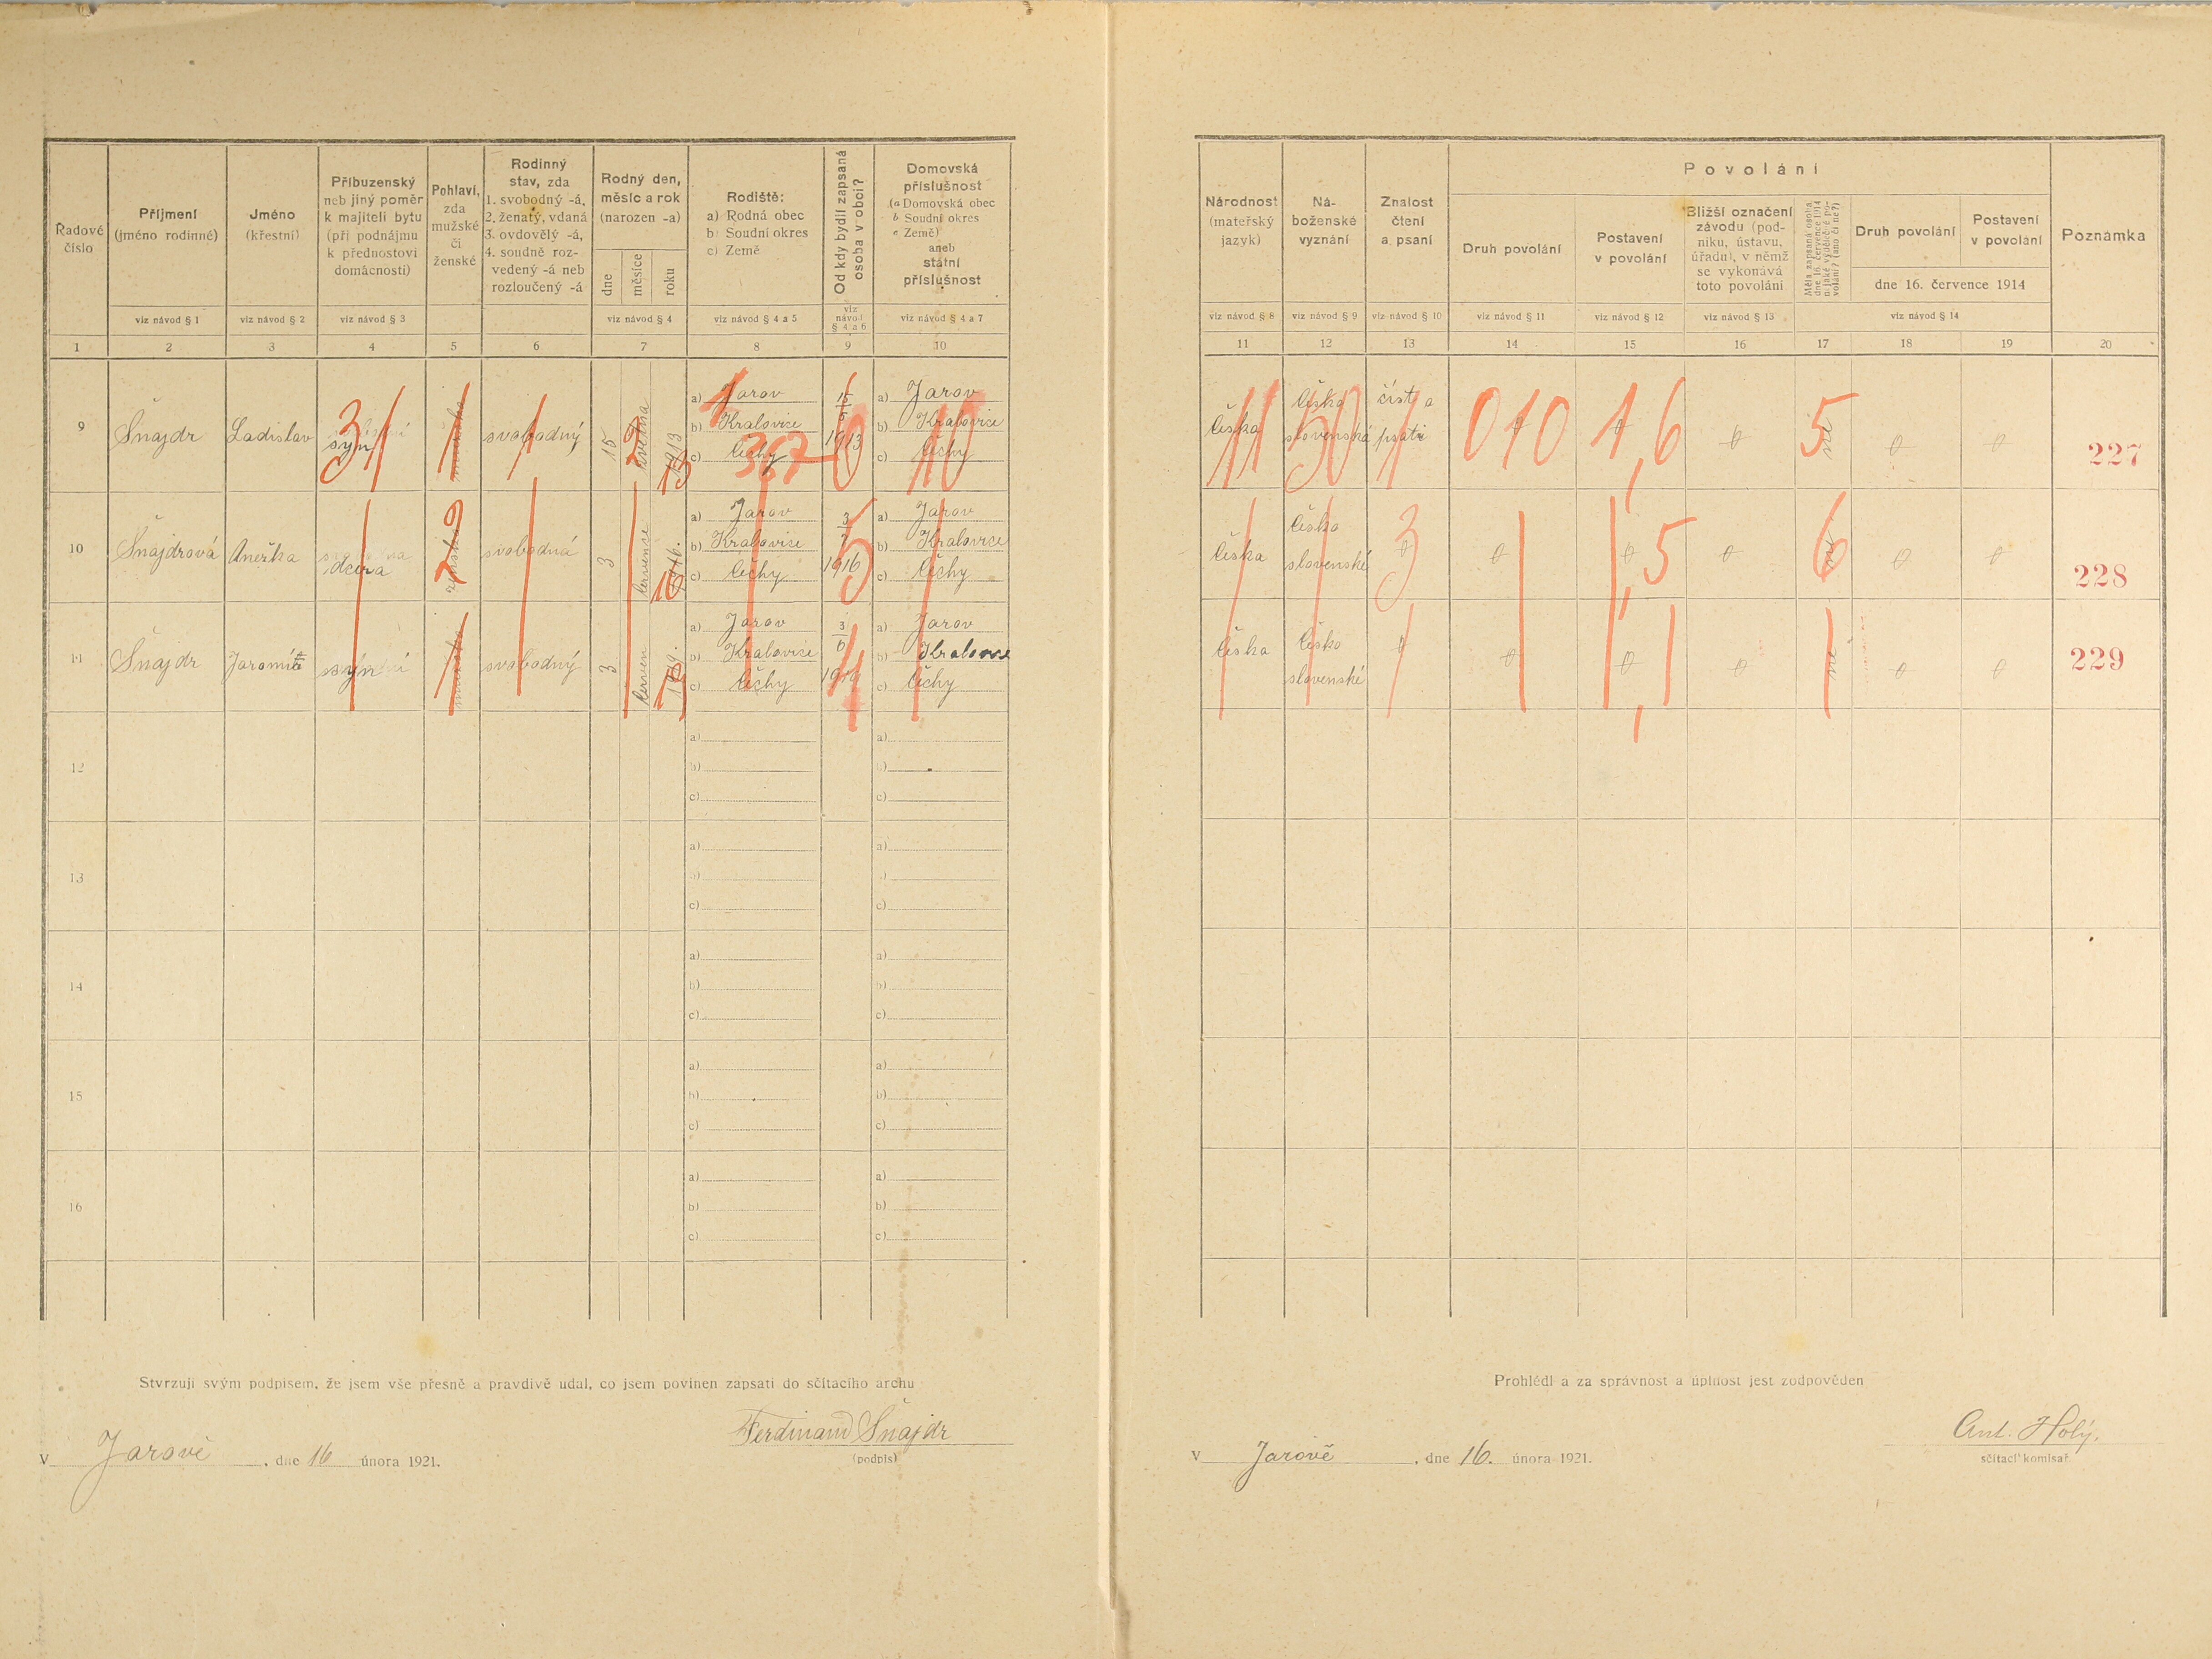 Řadové číslo
Příjmení (jméno rodinné)
viz návod § 1
Jméno (křestní)
viz návod § 2
Příbuzenský neb jiný poměr k majiteli bytu (při podnájmu k přednostovi domácnosti)
viz návod § 3
Pohlaví, zda mužské či ženské
Rodinný stav, zda 1. svobodný -á, 2. ženatý, vdaná 3. ovdovělý -á, 4. soudně rozvedený -á neb rozloučený -á
Rodný den, měsíc a rok (narozen -a)
dne měsíce roku
viz návod § 4
Rodiště: a) Rodná obec b) Soudní okres c) Země
viz návod § 4 a 5
Od kdy bydlí zapsaná osoba v obci?
viz návod § 4 a 6
Domovská příslušnost (a Domovská obec b Soudní okres c Země) aneb státní příslušnost
viz návod § 4 a 7
Národnost (mateřský jazyk)
viz návod § 8
Náboženské vyznání
viz návod § 9
Znalost čtení a psaní
viz návod § 10
Povolání
Druh povolání
viz návod § 11
Postavení v povolání
viz návod § 12
Bližší označení závodu (podniku, ústavu, úřadu), v němž se vykonává toto povolání
viz návod § 13
Měla zapsaná osoba dne 16. července 1914 nějaké výdělečné povolání? (ano či ne?)
Druh povolání
Postavení v povolání
dne 16. července 1914
viz návod § 14
Poznámka
1 2 3 4 5 6 7 8 9 10 11 12 13 14 15 16 17 18 19 20
9 Šnajdr Ladislav syn mužské svobodný 15 května 1913
a) Jarov
b) Kralovice
c) Čechy
15/5 1913
a) Jarov
b) Kralovice
c) Čechy
česká česko slovenská číst a psáti 0 0 0 ne 0 0 227
31 1 1 2 13 1 367 0 10 11 50 1 010 1,6 5
10 Šnajdrová Anežka dcera ženské svobodná 3 července 1916.
a) Jarov
b) Kralovice
c) Čechy
3/7 1916
a) Jarov
b) Kralovice
c) Čechy
česka česko slovenské 0 0 0 0 ne 0 0 228
2 16 5 3 1,5 6
11 Šnajdr Jaromír syn svobodný 3 červen
a) Jarov
b) Kralovice
c) Čechy
3/6 1919
a) Jarov
b) Kralovice
c) Čechy
česka česko slovenské 0 0 0 0 ne 0 0 229
1 19 4 1 1,1
12 a) b) c) a) b) c)
13 a) b) c) a) b) c)
14 a) b) c) a) b) c)
15 a) b) c) a) b) c)
16 a) b) c) a) b) c)
Stvrzuji svým podpisem, že jsem vše přesně a pravdivě udal, co jsem povinen zapsati do sčítacího archu
Ferdinand Šnajdr
(podpis)
V Jarově, dne 16 února 1921.
Prohlédl a za správnost a úplnost jest zodpověden
Ant. Holý.
sčítací komisař.
V Jarově, dne 16. února 1921.